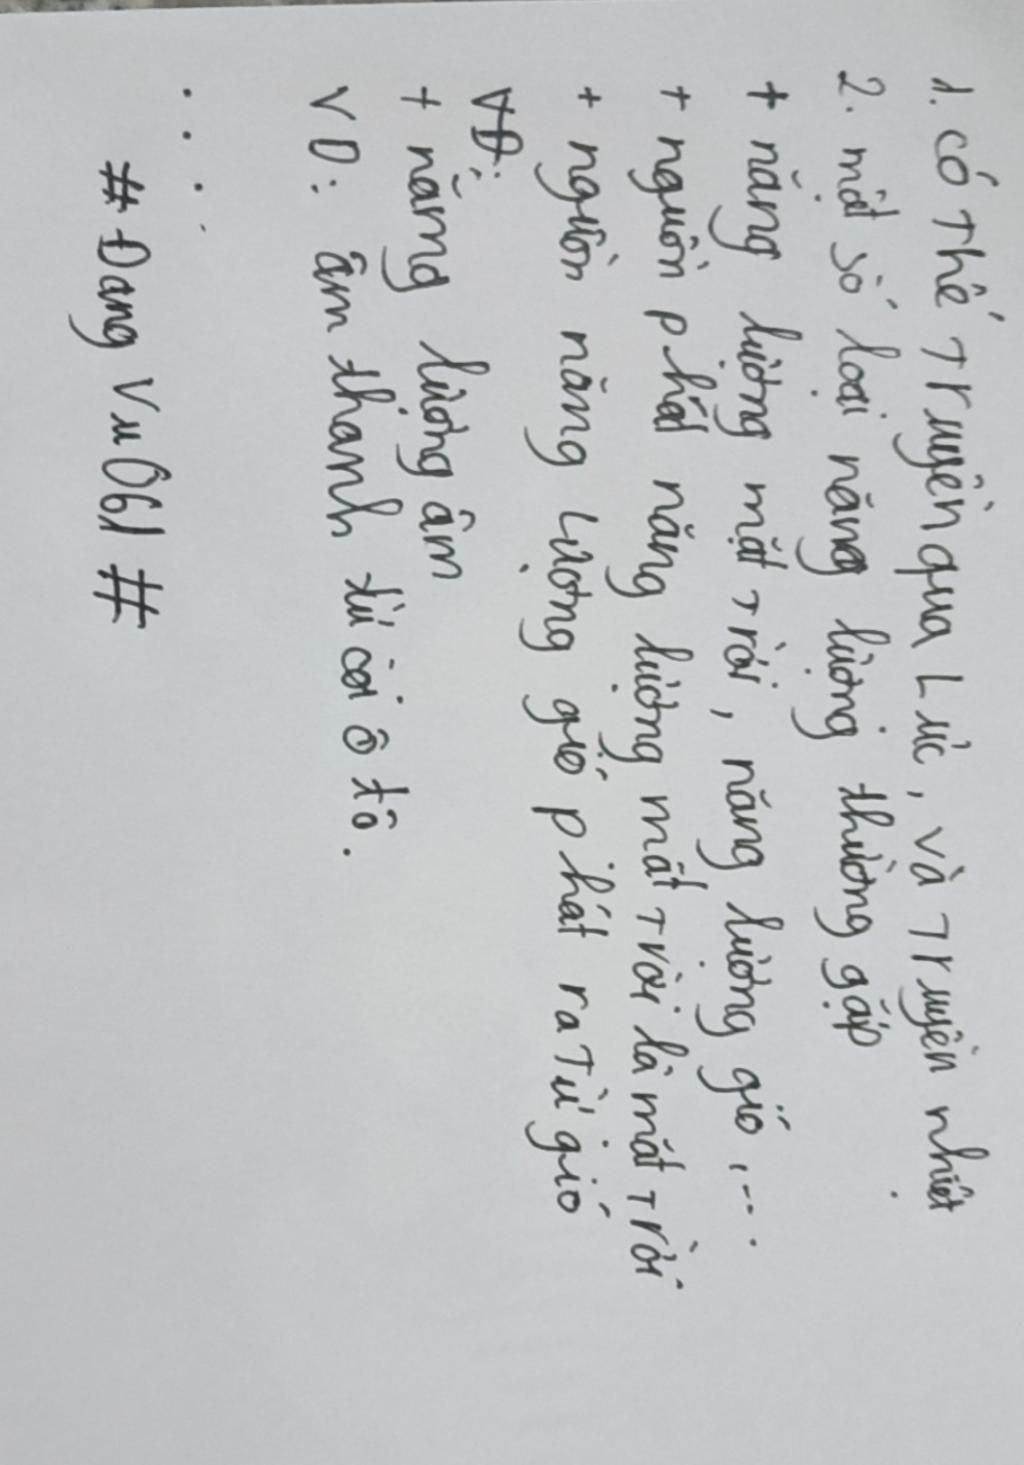 1. Có thể truyền qua Lực, và truyền nhiệt
2. một số loại năng lượng thường gặp
+ năng lượng mặt trời, năng lượng gió,...
+ nguồn phát năng lượng mặt trời là mặt trời
+ nguồn năng lượng gió phát ra từ gió
VĐ:
+ năng lượng âm
VD: âm thanh từ còi ô tô.
. . .
#Đang Vu061#